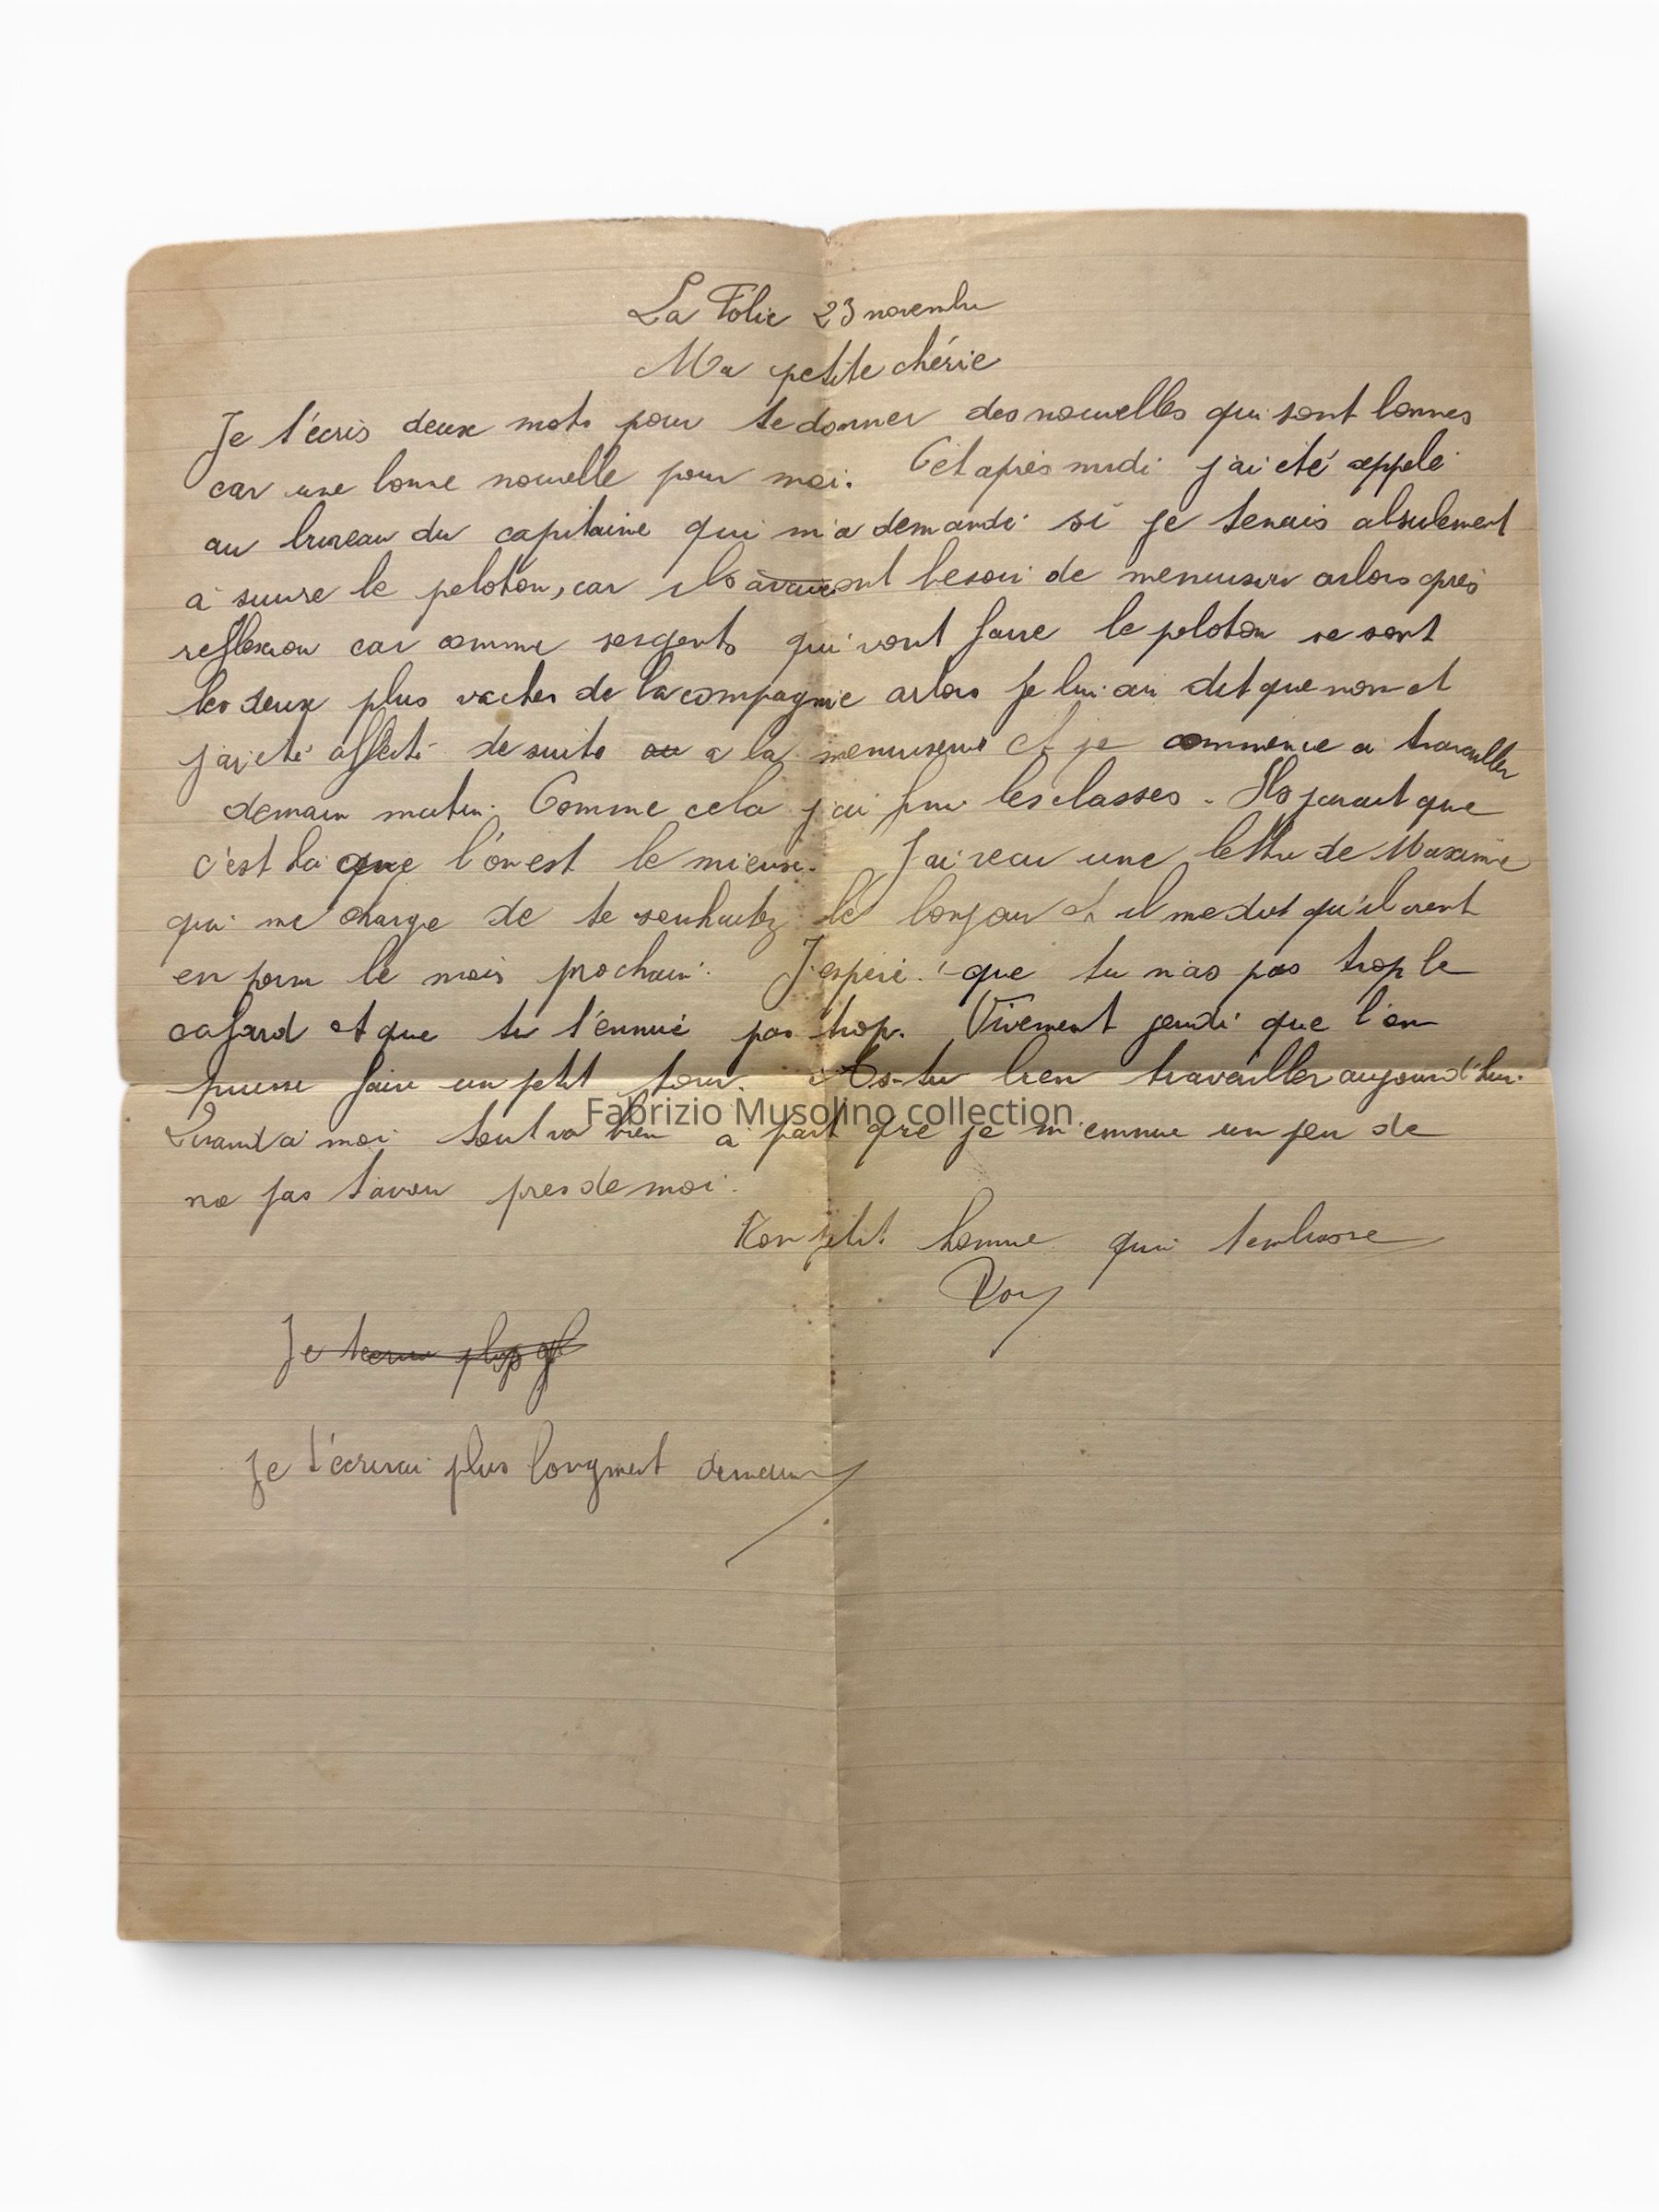 La Folie 23 novembre
Ma petite chérie
Je t'écris deux mots pour te donner des nouvelles qui sont bonnes
car une bonne nouvelle pour moi. Cet après midi j'ai été appelé
au bureau du capitaine qui m'a demandé si je tenais absulement
à suivre le peloton, car ils avaient ont besoin de menuisier arlors après
reflexion car comme sergents qui vont faire le peloton se sont
les deux plus vaches de la compagnie arlors je lui ai dit que non et
j'ai été affecté de suite au a la menuiserie et je commence a travailler
demain matin. Comme cela j'ai fini les classes. Ils parait que
c'est la que l'on est le mieux. J'ai recu une lettre de Maxime
qui me charge de te souhaitez le bonjour et il me dit qu'il vient
en perm le mois prochain. J'espère que tu n'as pas trop le
cafard et que tu t'ennuie pas trop. Vivement jeudi que l'on
puisse faire un petit tour. As-tu bien travailler aujourd'hui.
Fabrizio Musolino collection.
Quand a moi tout va bien a part que je m'ennuie un peu de
ne pas t'avoir pres de moi.
Ton petit homme qui t'embrasse
Je plus
Je t'écrirai plus longment demain